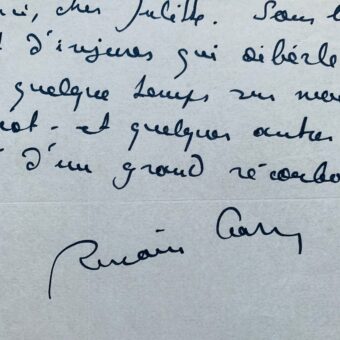 ci, cher Juliette. Sans l
d'injures qui dibérle
quelque temps sur mon
et quelques autres
d'un grand réconfo
Romain Gary